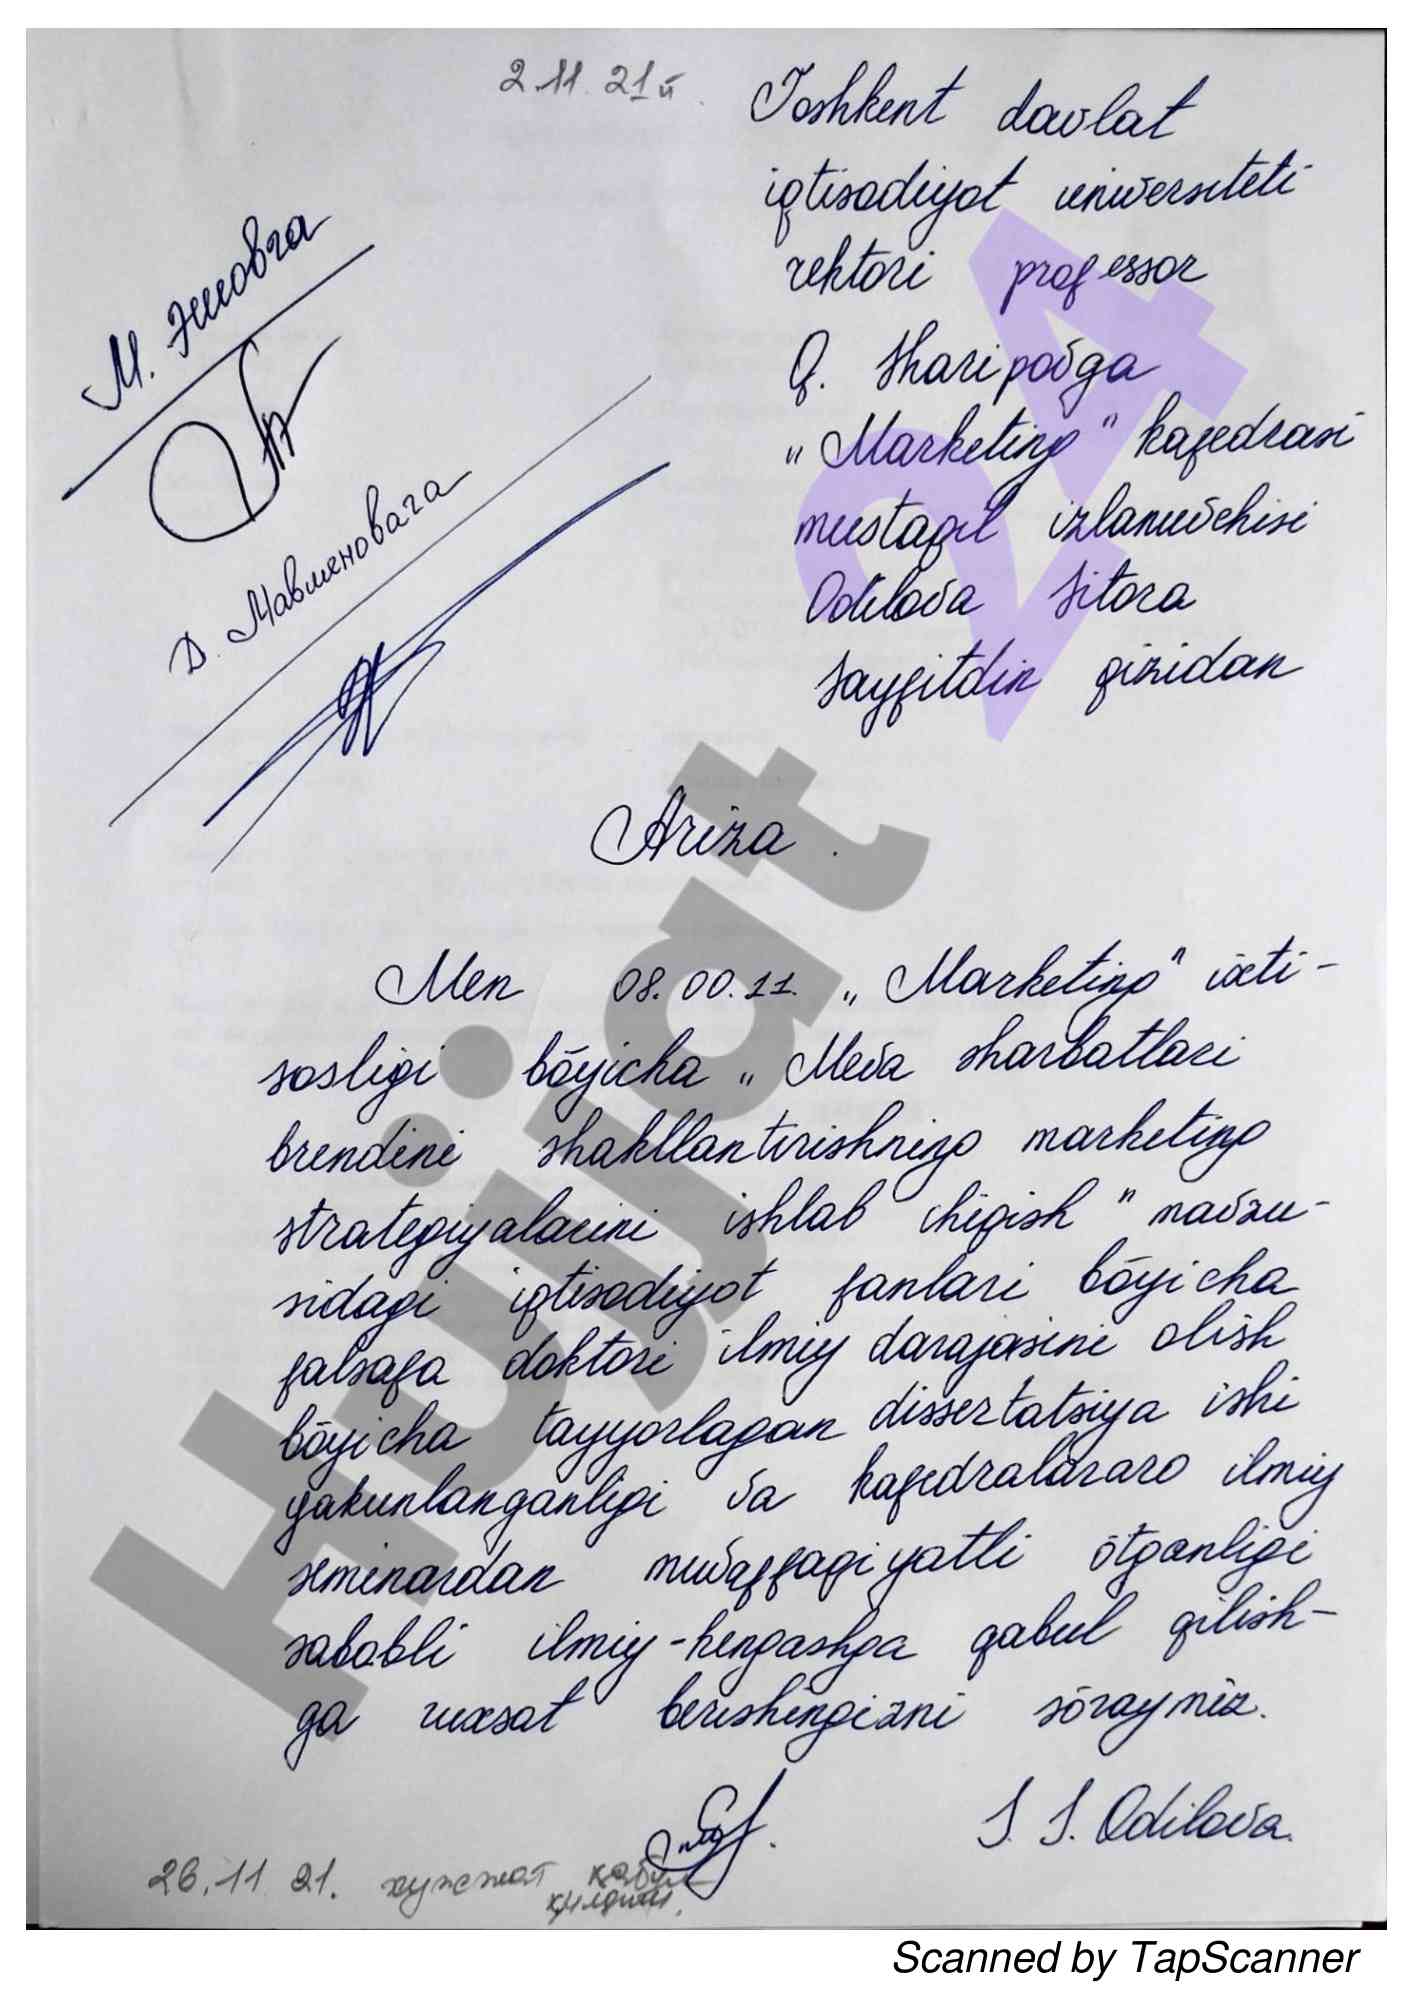 2.11.21й
Toshkent davlat
iqtisodiyot universiteti
rektori professor
Q. Sharipovga
„Marketing" kafedrasi
mustaqil izlanuvchisi
Odilova Sitora
Sayfitdin qizidan
М. Эшовга
Д. Мавляновага
Ariza.
Men 08.00.11. „Marketing" ixti-
sosligi bōyicha „Meva sharbatlari
brendini shakllantirishning marketing
strategiyalarini ishlab chiqish" mavzu-
sidagi iqtisodiyot fanlari bōyicha
falsafa doktori ilmiy darajasini olish
bōyicha tayyorlagan dissertatsiya ishi
yakunlanganligi va kafedralararo ilmiy
seminardan muvaffaqiyatli ōtganligi
sababli ilmiy-kengashga qabul qilish-
ga ruxsat berishingizni sōraymiz.
S. S. Odilova.
26.11.21. хужжат қабул
қилдим.
Hujjat 24
Scanned by TapScanner